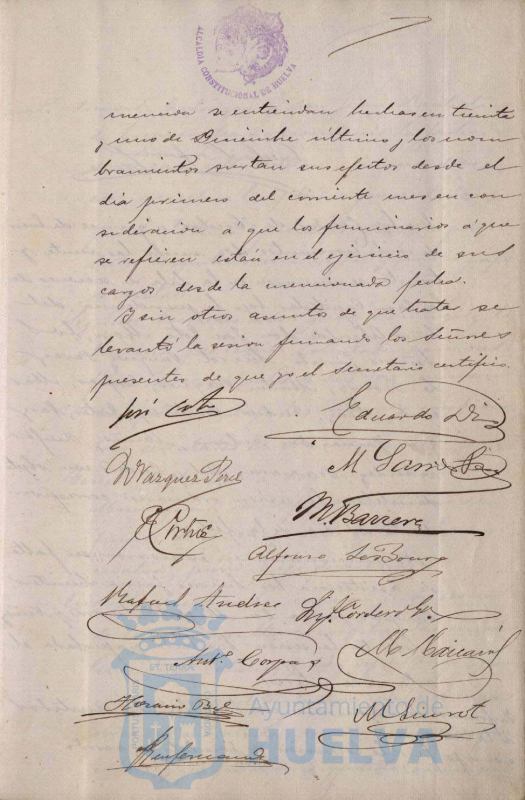 ALCALDIA CONSTITUCIONAL DE HUELVA
mencida se entiendan hechas en treinta
y uno de Diciembre último y los nom
bramientos surtan sus efectos desde el
día primero del corriente mes en con
sideracion á que los funcionarios á que
se refieren están en el ejercicio de sus
cargos desde la mencionada fecha.
Y sin otros asuntos de que tratar se
levantó la sesion firmando los Señores
presentes de que yo el Secretario certifico.
José
Eduardo Díaz
Vazquez
M
M. Barrera
Alfonso
Rafael Andres
Cordero
Ant.º Corpas
M.
Horacio Bel
M Siurot
Ayuntamiento de
HUELVA